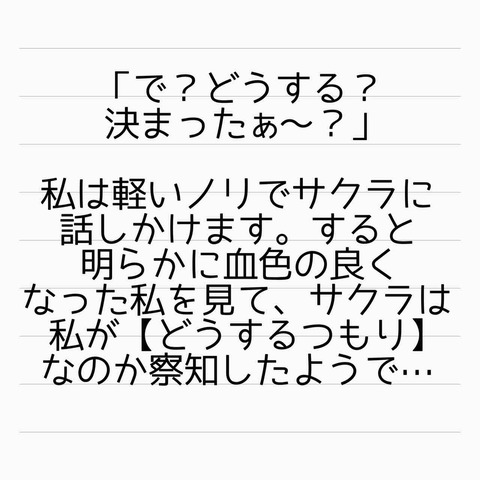 「で？どうする？
決まったぁ〜？」
私は軽いノリでサクラに
話しかけます。すると
明らかに血色の良く
なった私を見て、サクラは
私が【どうするつもり】
なのか察知したようで…